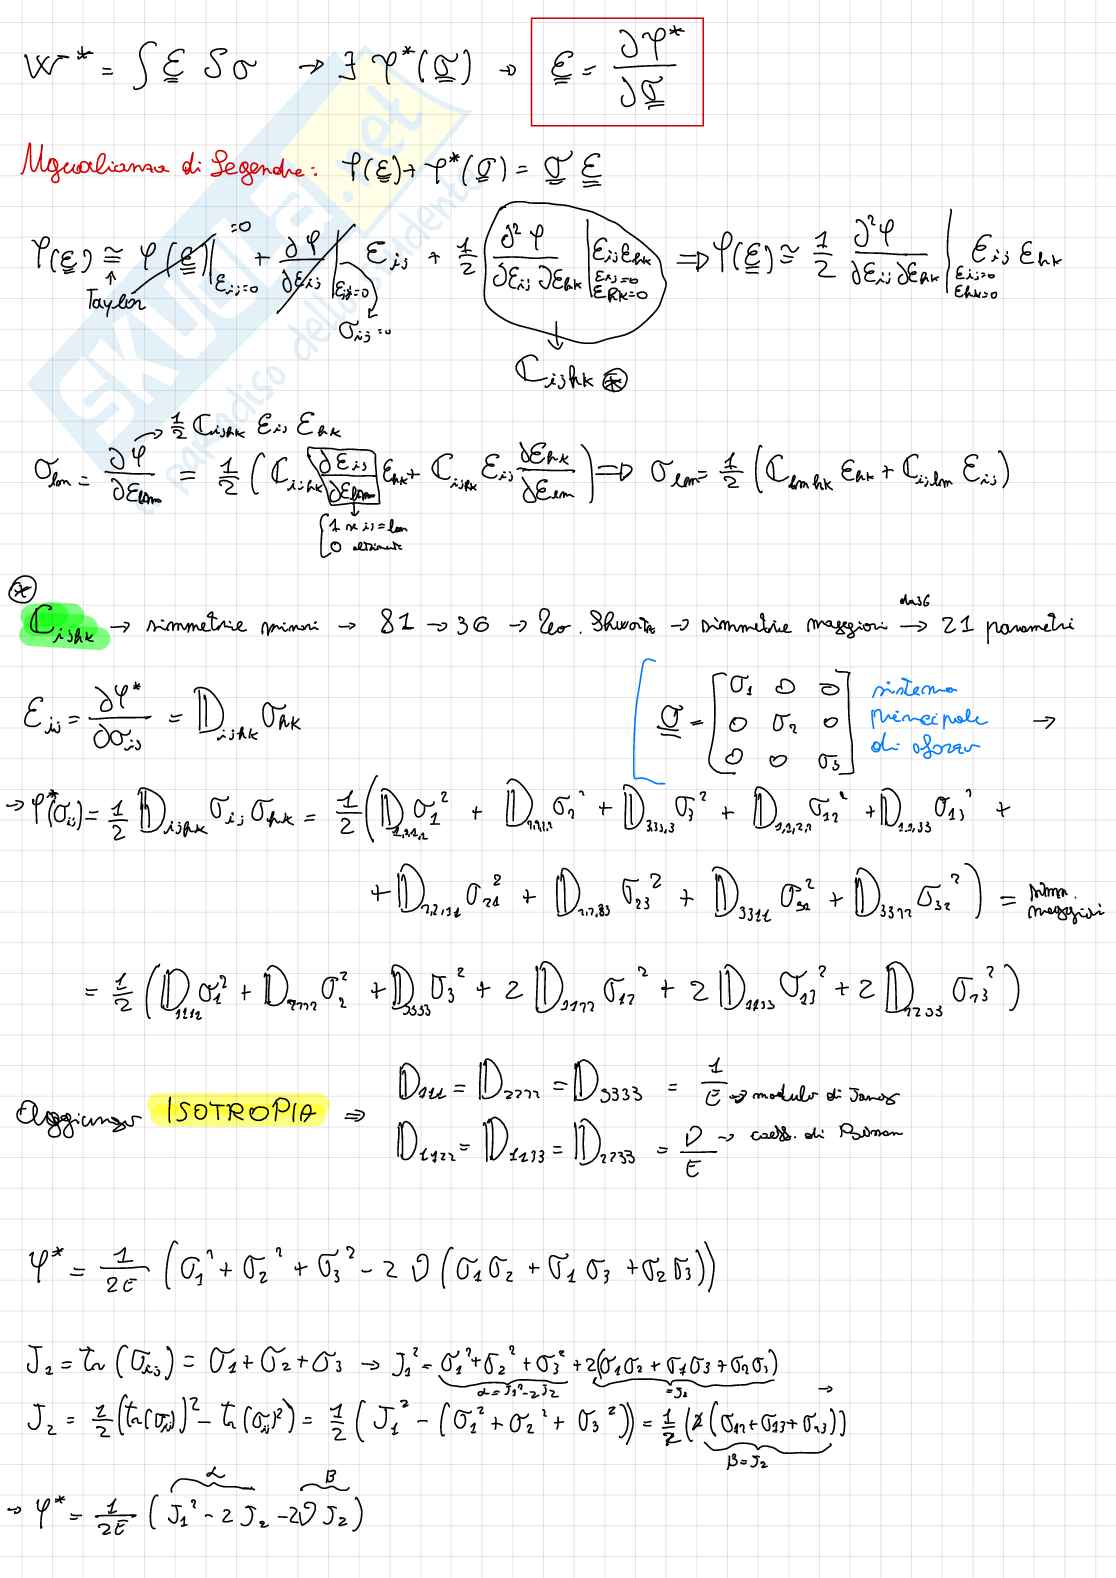 W* = ∫ ε δσ → ∃ φ*(σ) → ε = ∂φ*/∂σ
Uguaglianza di Legendre: φ(ε) + φ*(σ) = σ ε
φ(ε) ≅ φ(ε)|εij=0 + ∂φ/∂εij|εij=0 εij + 1/2 ∂²φ/∂εij ∂εhk|εij=0 εhk=0 εij εhk ⇒ φ(ε) ≅ 1/2 ∂²φ/∂εij ∂εhk|εij=0 εhk=0 εij εhk
=0
Taylor
σij=0
ℂijhk ⊛
→ 1/2 ℂijhk εij εhk
σlm = ∂φ/∂εlm = 1/2 (ℂijhk ∂εij/∂εlm εhk + ℂijhk εij ∂εhk/∂εlm) ⇒ σlm = 1/2 (ℂlmhk εhk + ℂijlm εij)
{ 1 se ij = lm
0 altrimenti
⊛
ℂijhk → simmetrie minori → 81 → 36 → Teo. Shwartz → simmetrie maggiori → da 36 21 parametri
εij = ∂φ*/∂σij = 𝔻ijhk σhk
σ = [σ1 0 0
0 σ2 0
0 0 σ3]
sistema
principale
di sforzo →
→ φ*(σij) = 1/2 𝔻ijhk σij σhk = 1/2 (𝔻1,1,1,1 σ1² + 𝔻2,2,2,2 σ2² + 𝔻3,3,3,3 σ3² + 𝔻1,1,2,2 σ12² + 𝔻1,1,33 σ13² +
+ 𝔻2,2,11 σ21² + 𝔻2,2,33 σ23² + 𝔻3311 σ31² + 𝔻3322 σ32²) = simm. maggiori
= 1/2 (𝔻1111 σ1² + 𝔻2222 σ2² + 𝔻3333 σ3² + 2 𝔻1122 σ12² + 2 𝔻1133 σ13² + 2 𝔻2233 σ23²)
Aggiungo ISOTROPIA ⇒
𝔻1111 = 𝔻2222 = 𝔻3333 = 1/E → modulo di Joung
𝔻1122 = 𝔻1133 = 𝔻2233 = ν/E → coeff. di Poisson
φ* = 1/2E (σ1² + σ2² + σ3² - 2ν (σ1σ2 + σ1σ3 + σ2σ3))
J1 = tr(σij) = σ1 + σ2 + σ3 → J1² = σ1² + σ2² + σ3² + 2(σ1σ2 + σ1σ3 + σ2σ3)
α = J1² - 2J2 = J2 →
J2 = 1/2 (tr(σij)² - tr(σij²) = 1/2 (J1² - (σ1² + σ2² + σ3²)) = 1/2 (2 (σ12 + σ13 + σ23))
β = J2
α β
→ φ* = 1/2E (J1² - 2J2 - 2ν J2)